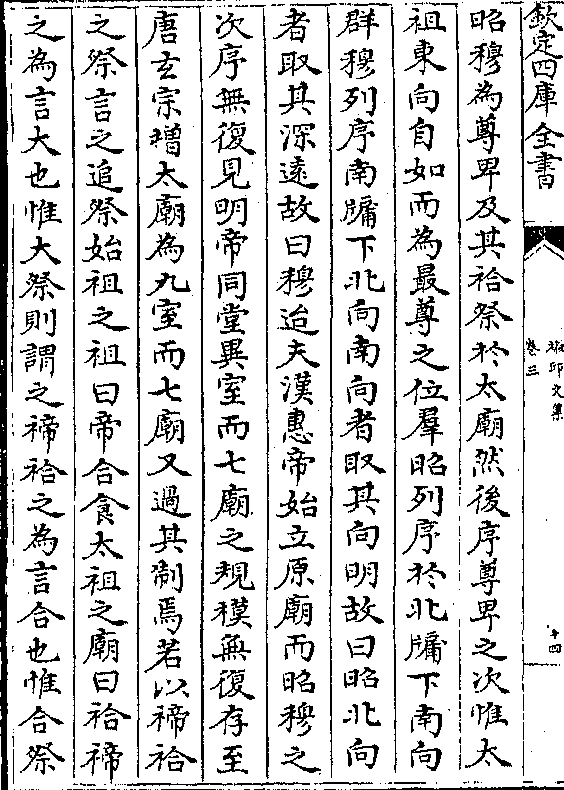 欽定四庫全書
卷三
十四
昭穆為尊卑及其祫祭於太廟然後序尊卑之次惟太
祖東向自如而為最尊之位羣昭列序於北牖下南向
群穆列序南牖下北向南向者取其向明故曰昭北向
者取其深遠故曰穆迨夫漢惠帝始立原廟而昭穆之
次序無復見明帝同堂異室而七廟之規模無復存至
唐玄宗增太廟為九室而七廟又過其制焉若以禘祫
之祭言之追祭始祖之祖曰帝合食太祖之廟曰祫禘
之為言大也惟大祭則謂之禘祫之為言合也惟合祭